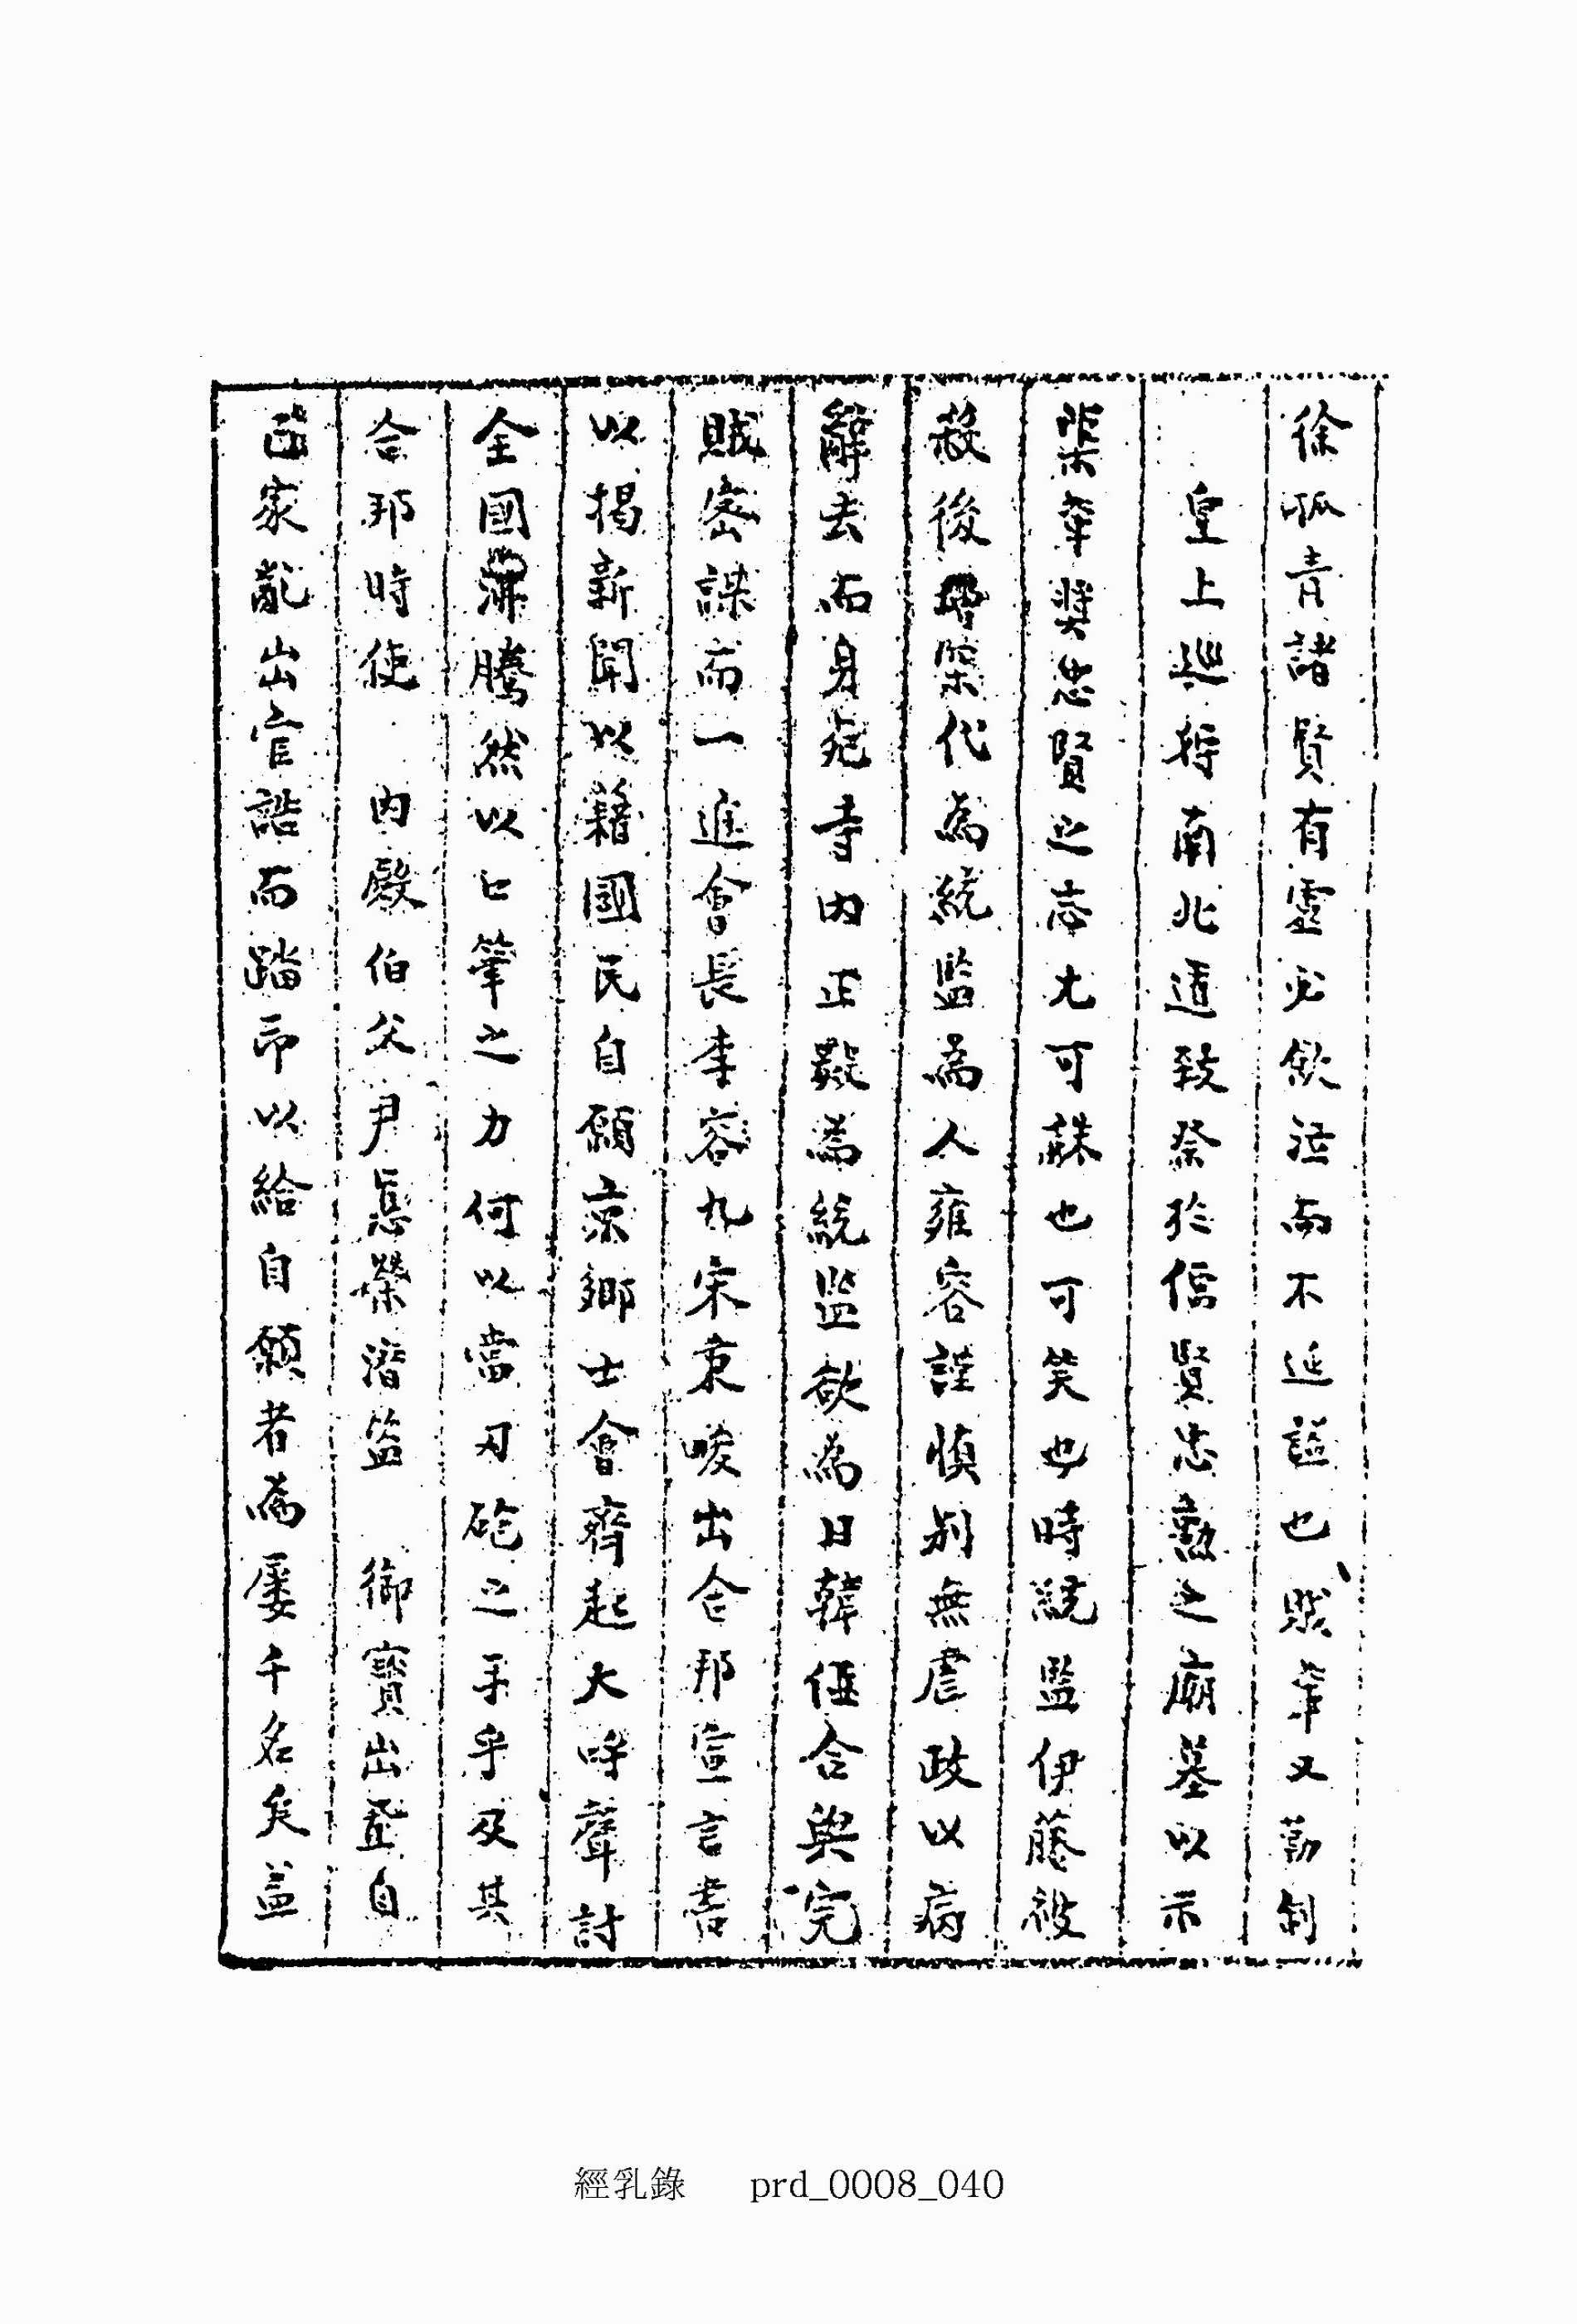 徐孤青諸賢有靈必飲泣而不延謚也賊輩又勒制
皇上巡狩南北道致祭於信賢忠勳之廟墓以示
渠輩奬忠賢之志尤可蘇也可笑也時統監伊藤被
殺後曾禰代為統監為人雍容謹慎別無虐政以病
辭去而身死寺內正毅為統監欲為日韓倂合與完
賊密謀而一進會長李容九宋秉畯出合邦宣言書
以揭新聞以籍國民自願京鄉士會齊起大呼聲討
全國沸騰然以口筆之力何以當刃砲之手乎及其
合邦時使 內殿伯父尹悳榮潛盜 御寶出登自
己家亂出官誥而踏印以給自願者為屢千名矣益